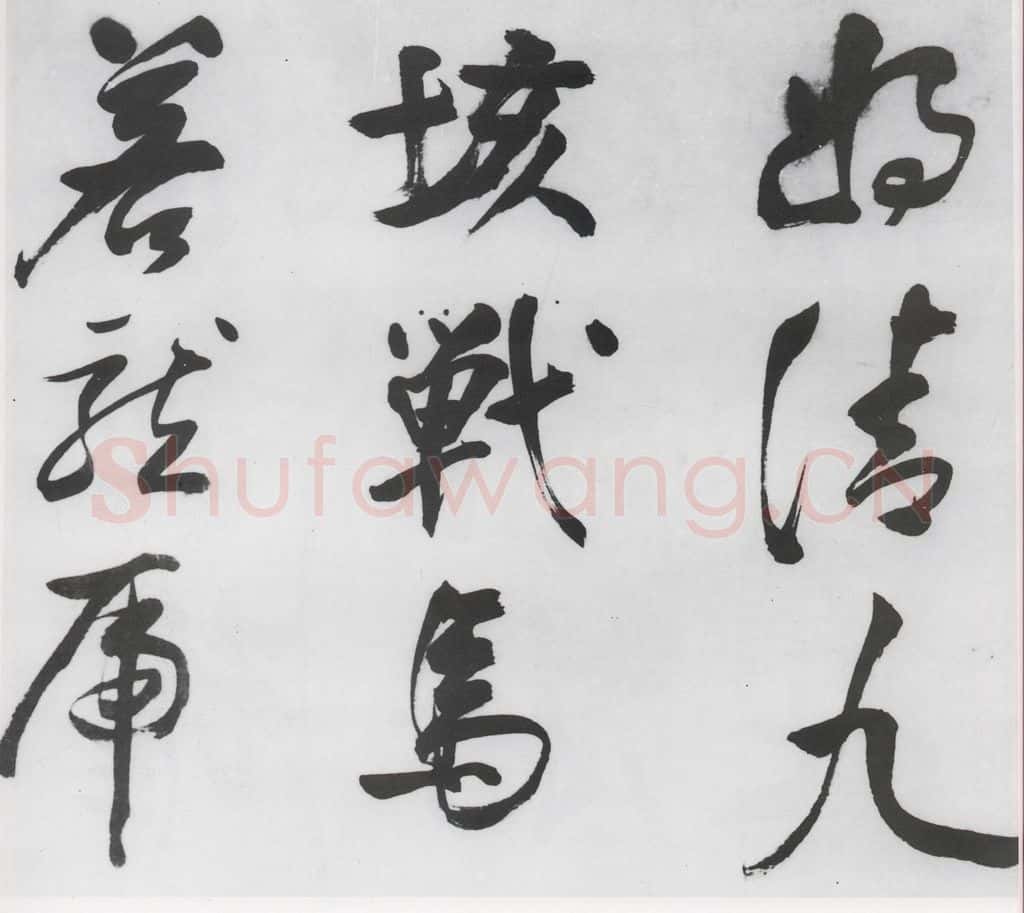 将清九
垓戰馬
若龍虎
Shufawang.CN